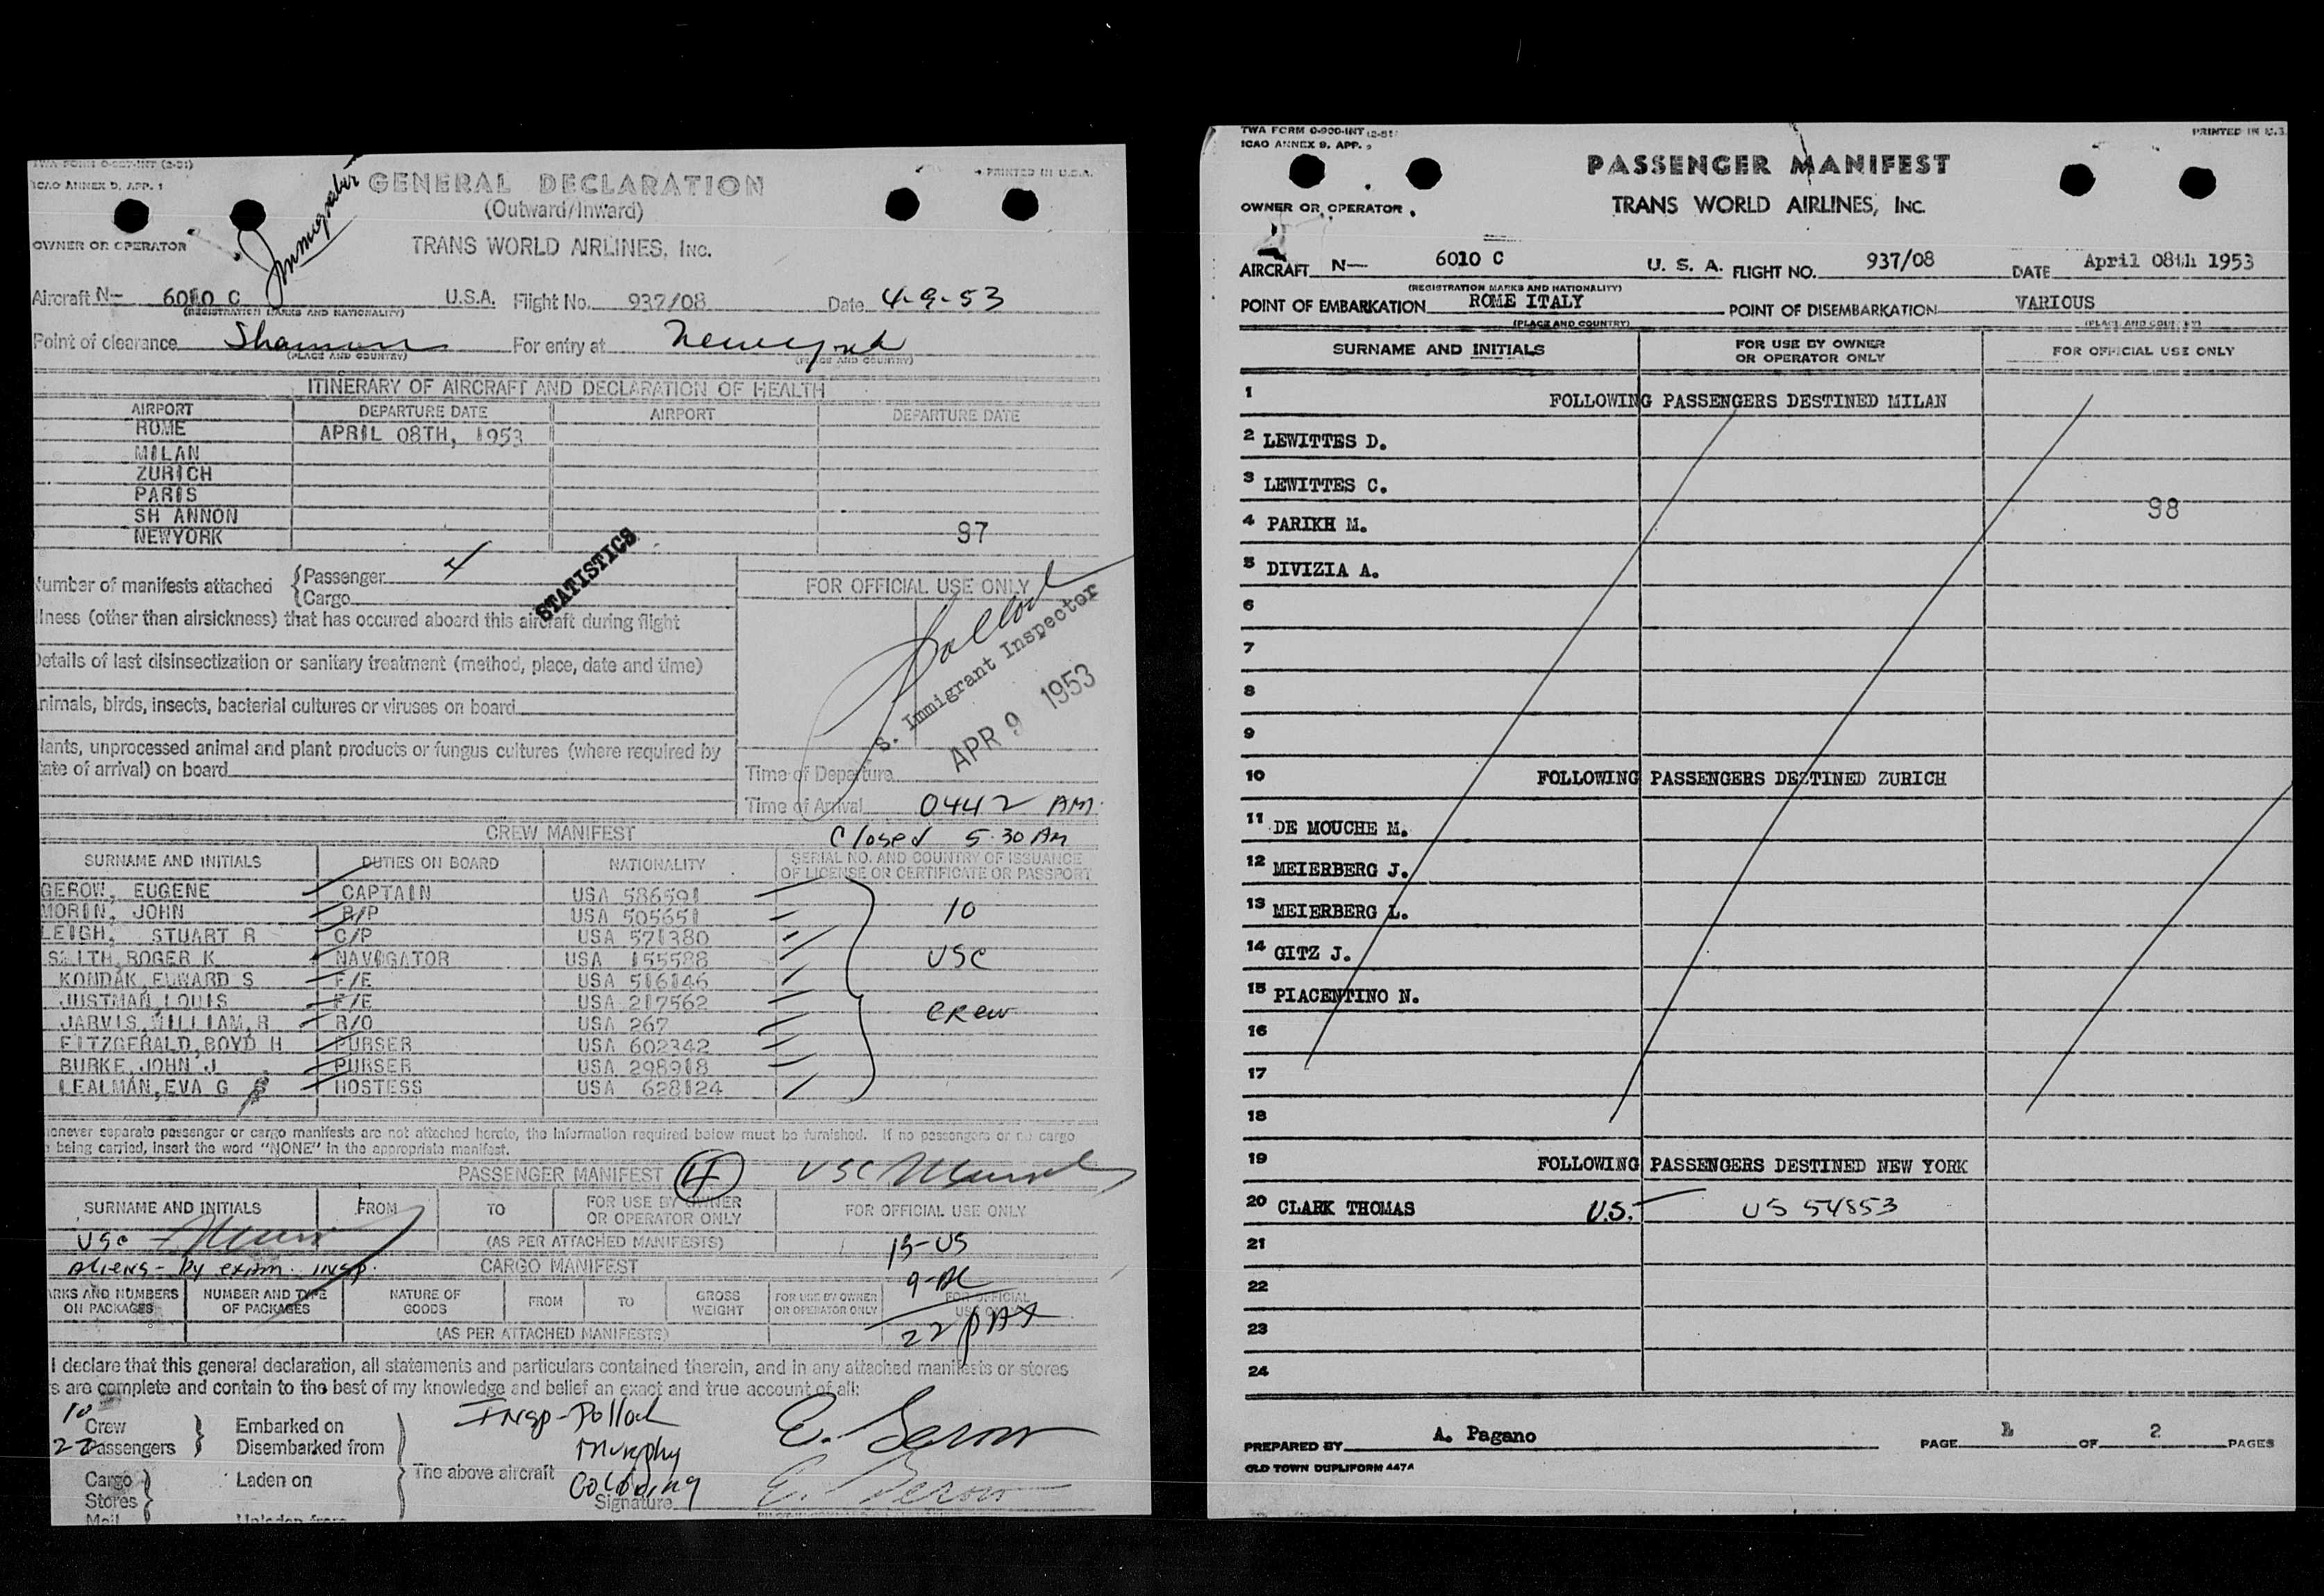 TWA FORM 0-907-INT (2-51)
ICAO ANNEX 9, APP. 1
PRINTED IN U.S.A.
Immigration
GENERAL DECLARATION
(Outward/Inward)
OWNER OR OPERATOR
TRANS WORLD AIRLINES, INC.
Aircraft N- 6010 C U.S.A. Flight No. 937/08 Date 4-9-53
(REGISTRATION MARKS AND NATIONALITY)
Point of clearance Shannon For entry at Newyork
(PLACE AND COUNTRY) (PLACE AND COUNTRY)
ITINERARY OF AIRCRAFT AND DECLARATION OF HEALTH
AIRPORT DEPARTURE DATE AIRPORT DEPARTURE DATE
ROME APRIL 08TH, 1953
MILAN
ZURICH
PARIS
SH ANNON
NEWYORK 97
STATISTICS
Number of manifests attached Passenger
Cargo
FOR OFFICIAL USE ONLY
llness (other than airsickness) that has occured aboard this aircraft during flight
Details of last disinsectization or sanitary treatment (method, place, date and time)
nimals, birds, insects, bacterial cultures or viruses on board
lants, unprocessed animal and plant products or fungus cultures (where required by
tate of arrival) on board
Pollock
S. Immigrant Inspector
APR 9 1953
Time of Departure
Time of Arrival 0442 AM.
Closed 5.30 AM
CREW MANIFEST
SURNAME AND INITIALS DUTIES ON BOARD NATIONALITY SERIAL NO. AND COUNTRY OF ISSUANCE
OF LICENSE OR CERTIFICATE OR PASSPORT
GEROW, EUGENE CAPTAIN USA 586591
MORIN, JOHN R/P USA 505651
LEIGH, STUART R C/P USA 571380
SMITH, ROGER K NAVIGATOR USA 155588
KONDAK, EDWARD S F/E USA 516146
JUSTMAN, LOUIS F/E USA 217562
JARVIS, WILLIAM, R R/O USA 267
FITZGERALD, BOYD H PURSER USA 602342
BURKE, JOHN J PURSER USA 298918
LEALMAN, EVA G HOSTESS USA 628124
10
USC
CREW
enever separate passenger or cargo manifests are not attached hereto, the information required below must be furnished. If no passengers or no cargo
being carried, insert the word "NONE" in the appropriate manifest.
PASSENGER MANIFEST USC
SURNAME AND INITIALS FROM TO FOR USE BY OWNER
OR OPERATOR ONLY FOR OFFICIAL USE ONLY
USC
(AS PER ATTACHED MANIFESTS)
Aliens - by exam. insp.
CARGO MANIFEST
ARKS AND NUMBERS
ON PACKAGES NUMBER AND TYPE
OF PACKAGES NATURE OF
GOODS FROM TO GROSS
WEIGHT FOR USE BY OWNER
OR OPERATOR ONLY FOR OFFICIAL
USE ONLY
(AS PER ATTACHED MANIFESTS) 22 PAX
I declare that this general declaration, all statements and particulars contained therein, and in any attached manifests or stores
s are complete and contain to the best of my knowledge and belief an exact and true account of all:
10 Crew
22 Passengers Embarked on
Disembarked from
Insp-Pollock
Murphy
E. Gerow
Cargo
Stores
Mail Laden on
The above aircraft
Signature
E. Gerow
TWA FORM 0-900-INT (2-51)
ICAO ANNEX 9, APP.
PRINTED IN U.S.
PASSENGER MANIFEST
OWNER OR OPERATOR
TRANS WORLD AIRLINES, INC.
AIRCRAFT N— 6010 C U. S. A. FLIGHT NO. 937/08 DATE April 08th 1953
(REGISTRATION MARKS AND NATIONALITY)
POINT OF EMBARKATION ROME ITALY POINT OF DISEMBARKATION VARIOUS
(PLACE AND COUNTRY) (PLACE AND COUNTRY)
SURNAME AND INITIALS FOR USE BY OWNER
OR OPERATOR ONLY FOR OFFICIAL USE ONLY
1 FOLLOWING PASSENGERS DESTINED MILAN
2 LEWITTES D.
3 LEWITTES C.
98
4 PARIKH M.
5 DIVIZIA A.
6
7
8
9
10 FOLLOWING PASSENGERS DEZTINED ZURICH
11 DE MOUCHE M.
12 MEIERBERG J.
13 MEIERBERG L.
14 GITZ J.
15 PIACENTINO N.
16
17
18
19 FOLLOWING PASSENGERS DESTINED NEW YORK
20 CLARK THOMAS U.S. US 54853
21
22
23
24
PREPARED BY A. Pagano PAGE 1 OF 2 PAGES
OLD TOWN DUPLIFORM 447A